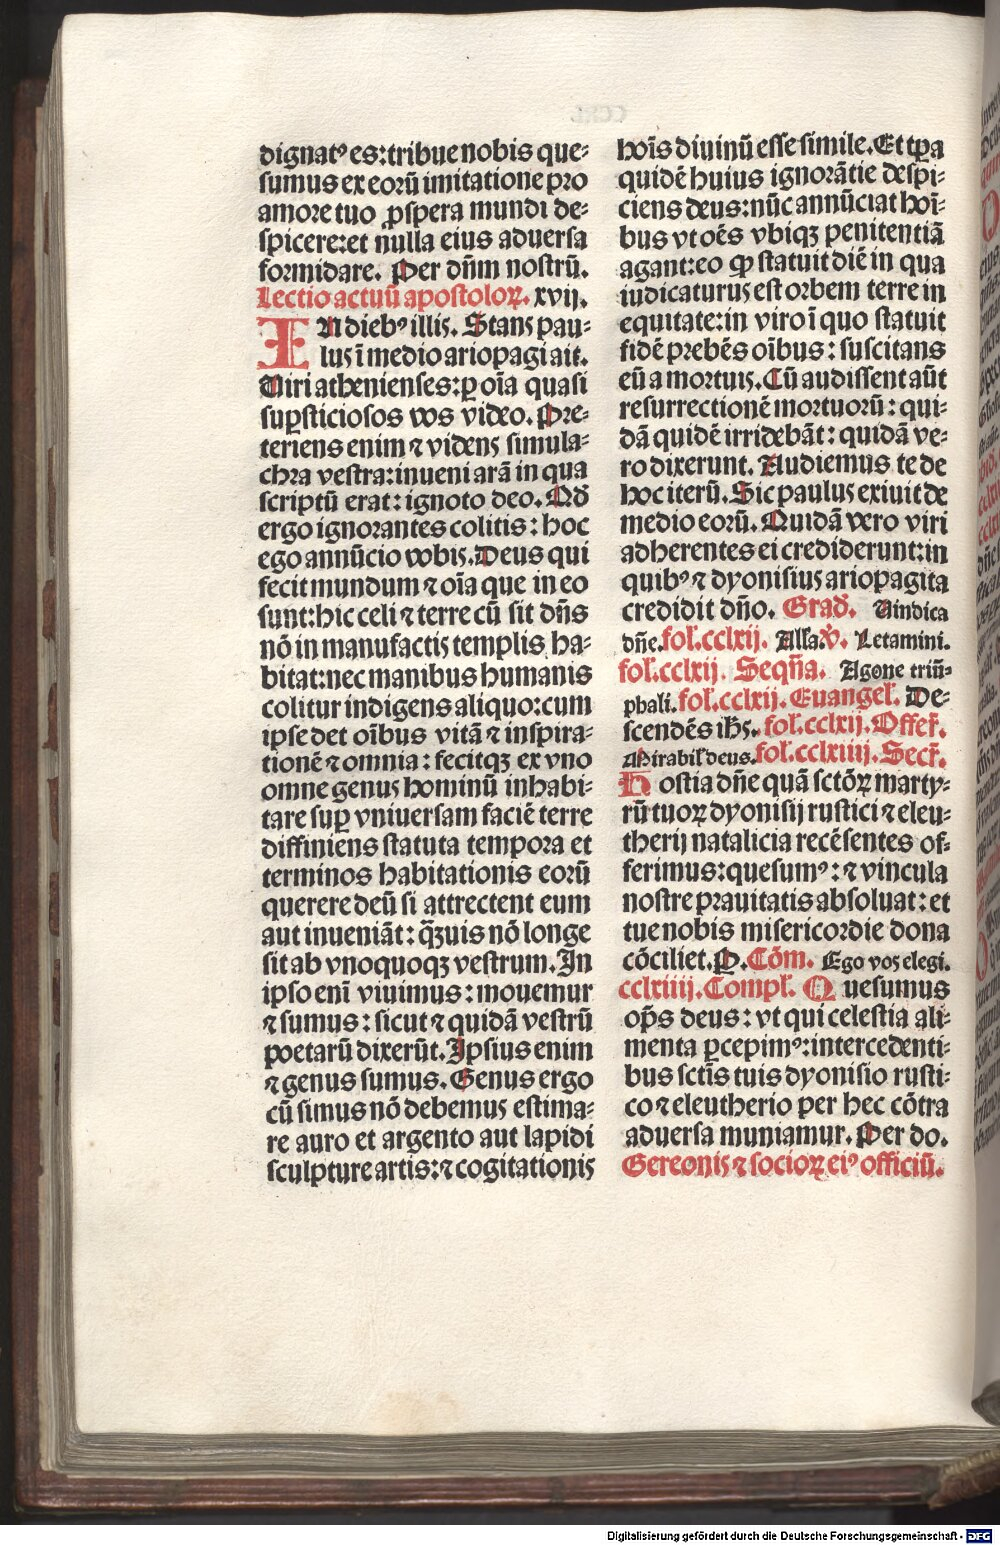 dignatꝰ es: tribue nobis que⸗
sumus ex eorū imitatione pro
amore tuo ꝓspera mundi de⸗
spicere: et nulla eius aduersa
formidare. Per dn̄m nostrū.
Lectio actuū apostoloꝝ. xvij.
IN diebꝰ illis. Stans pau⸗
lus ī medio ariopagi ait.
Viri athenienses: ꝑ oīa quasi
suꝑsticiosos vos video. Pre⸗
teriens enim ⁊ videns simula⸗
chra vestra: inueni arā in qua
scriptū erat: ignoto deo. Qd̄
ergo ignorantes colitis: hoc
ego annūcio vobis. Deus qui
fecit mundum ⁊ oīa que in eo
sunt: hic celi ⁊ terre cū sit dn̄s
nō in manufactis templis ha⸗
bitat: nec manibus humanis
colitur indigens aliquo: cum
ipse det oībus vitā ⁊ inspira⸗
tionē ⁊ omnia: fecitqꝫ ex vno
omne genus hominū inhabi⸗
tare suꝑ vniuersam faciē terre
diffiniens statuta tempora et
terminos habitationis eorū
querere deū si attrectent eum
aut inueniāt: q̄ꝫuis nō longe
sit ab vnoquoqꝫ vestrum. In
ipso enī viuimus: mouemur
⁊ sumus: sicut ⁊ quidā vestrū
poetarū dixerūt. Ipsius enim
⁊ genus sumus. Genus ergo
cū simus nō debemus estima⸗
re auro et argento aut lapidi
sculpture artis: ⁊ cogitationis
hoīs diuinū esse simile. Et tꝑa
quidē huius ignorātie despi⸗
ciens deus: nūc annūciat hoī⸗
bus vt oēs vbiqꝫ penitentiā
agant: eo ꝙ statuit diē in qua
iudicaturus est orbem terre in
equitate: in viro ī quo statuit
fidē prebēs oībus: suscitans
eū a mortuis. Cū audissent aūt
resurrectionē mortuorū: qui⸗
dā quidē irridebāt: quidā ve⸗
ro dixerunt. Audiemus te de
hoc iterū. Sic paulus exiuit de
medio eorū. Quidā vero viri
adherentes ei crediderunt: in
quibꝰ ⁊ dyonisius ariopagita
credidit dn̄o. Grad̄. Vindica
dn̄e. fol̄. cclxij. Alla. v̄. Letamini.
fol̄. cclxij. Seqn̄a. Agone triū⸗
phali. fol̄. cclxij. Euangel̄. De⸗
scendēs ih̄s. fol̄. cclxij. Offer̄.
Mirabil̄ deus. fol̄. cclxiiij. Secr̄.
Hostia dn̄e quā sctōꝝ marty⸗
rū tuoꝝ dyonisij rustici ⁊ eleu⸗
therij natalicia recēsentes of⸗
ferimus: quesumꝰ: ⁊ vincula
nostre prauitatis absoluat: et
tue nobis misericordie dona
cōciliet. P. Cōm. Ego vos elegi.
cclxiiij. Compl̄. Quesumus
op̄s deus: vt qui celestia ali⸗
menta ꝑcepimꝰ: intercedenti⸗
bus sctīs tuis dyonisio rusti⸗
co ⁊ eleutherio per hec cōtra
aduersa muniamur. Per do.
Gereonis ⁊ socioꝝ eiꝰ officiū.
Digitalisierung gefördert durch die Deutsche Forschungsgemeinschaft - DFG